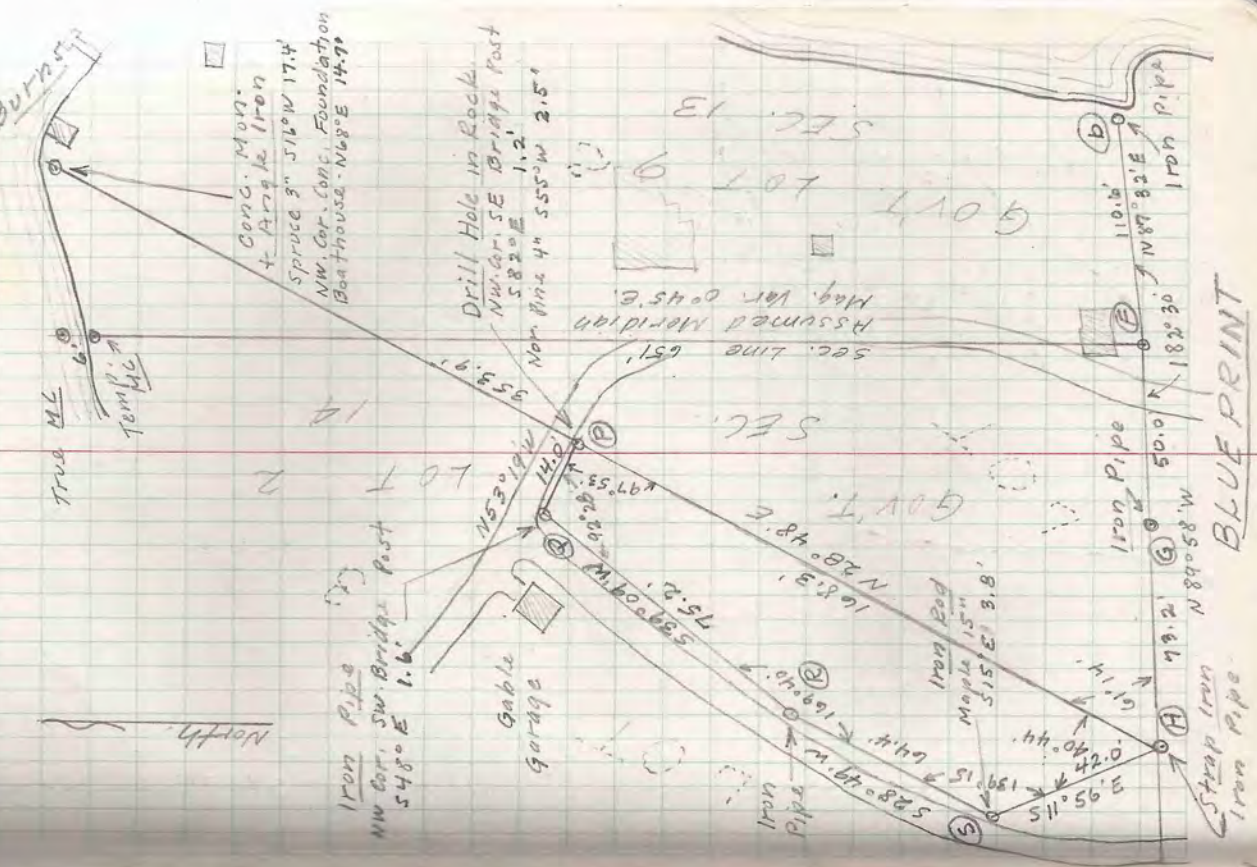 Burns
True MC
6'
Temp.
MC
Conc. Mon.
+ Angle Iron
Spruce 3" S16°W 17.4'
NW. Cor. Conc. Foundation
Boathouse - N68°E 14.7'
Drill Hole in Rock.
NW. Cor. SE Bridge Post
S82°E 1.2'
Nor Pine 4" S55°W 2.5'
SEC. 13
LOT 9
GOV'T
Sec. Line 651'
Assumed Meridian
Mag. Var. 0°45'E.
14
SEC.
LOT 2
GOV'T.
North
Iron Pipe
NW Cor. SW. Bridge Post
S48°E 1.6'
N53°19'W
14.0'
P
97°53'
Q
92°28'
S39°09'W
75.2'
Gable
Garage
N28°48'E
168.3'
R
169°40'
Iron
Pipe
64.4'
S28°49'W
Iron Rod
Maple 15"
S15°E 3.8'
S
139°15'
42.0'
40°44'
61°14'
A
Strap Iron
Iron Pipe
73.2'
N89°58'W
G
Iron Pipe
50.0'
E
182°30'
110.6'
N87°32'E
D
Iron Pipe
BLUE PRINT